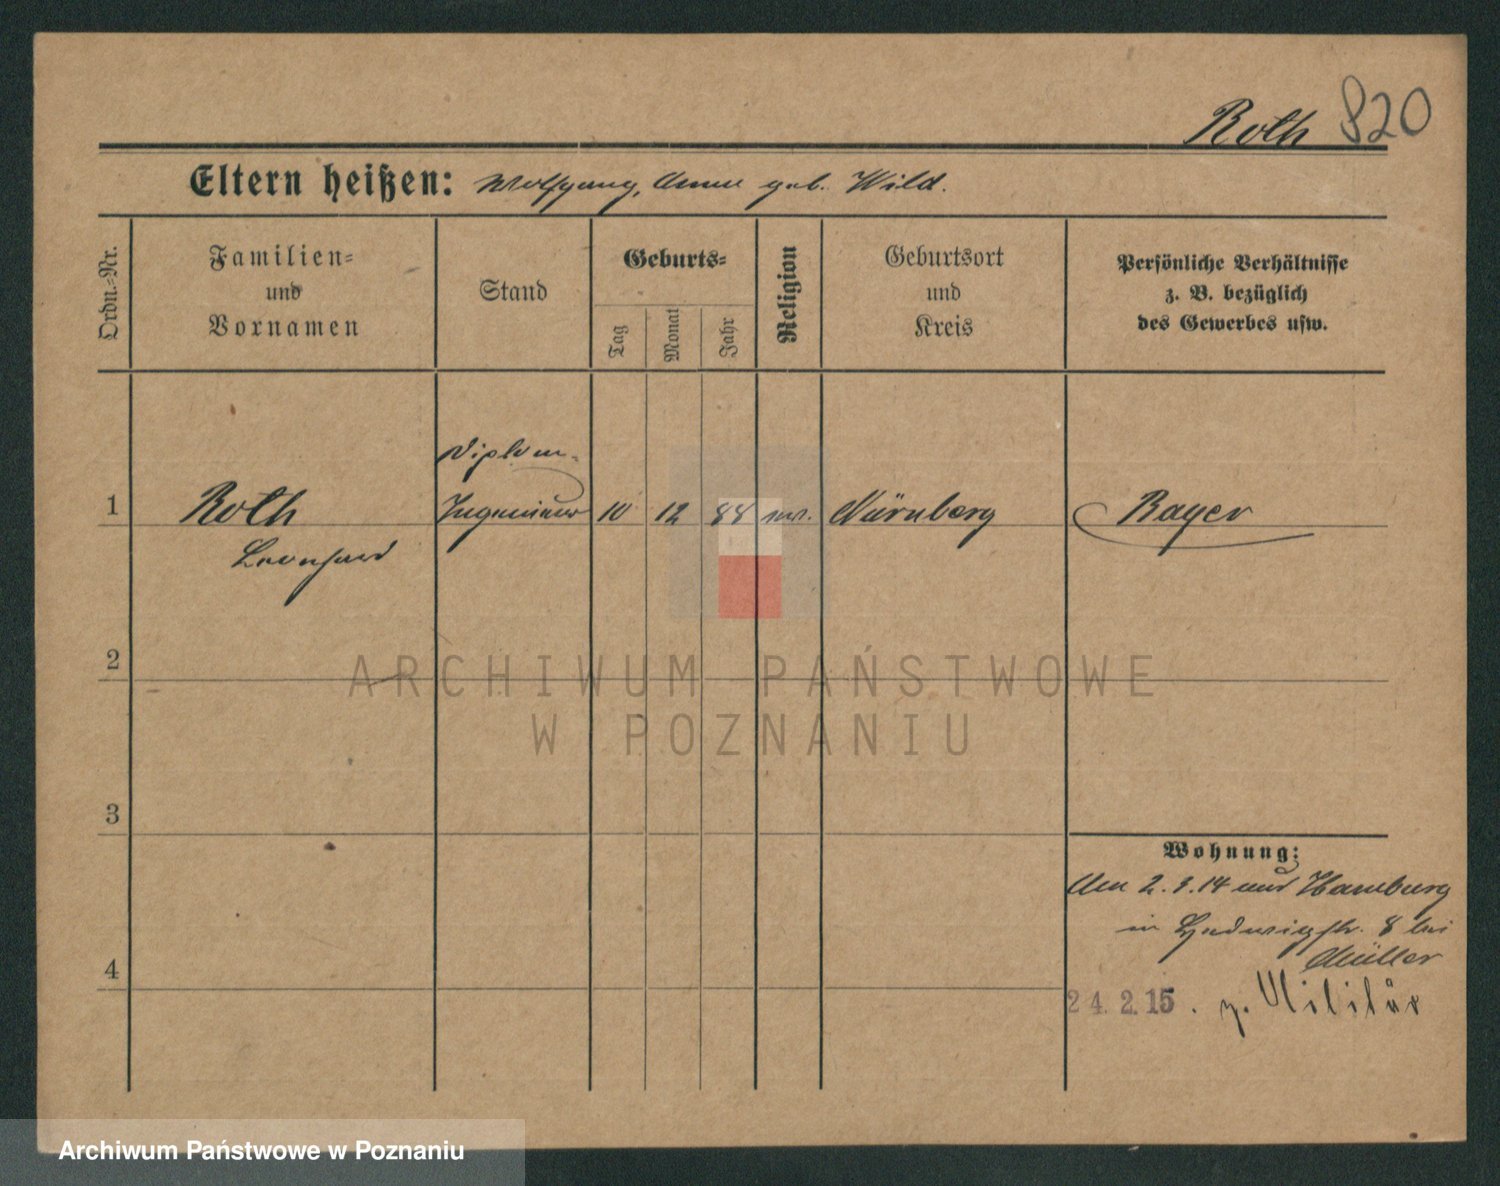 Roth 820
Eltern heißen: Wolfgang, Anna geb. Wild.
Ordn.-Nr.
Familien-
und
Vornamen
Stand
Geburts-
Tag
Monat
Jahr
Religion
Geburtsort
und
Kreis
Persönliche Verhältnisse
z. B. bezüglich
des Gewerbes usw.
Diplom-
1 Roth Ingenieur 10 12 88 Nürnberg Bayer
Leonhard
2
ARCHIWUM PAŃSTWOWE
W POZNANIU
3
Wohnung:
Am 2.3.14 aus Hamburg
in Hedwigstr. 8 bei
Müller
4
24.2.15. z. Militär
Archiwum Państwowe w Poznaniu